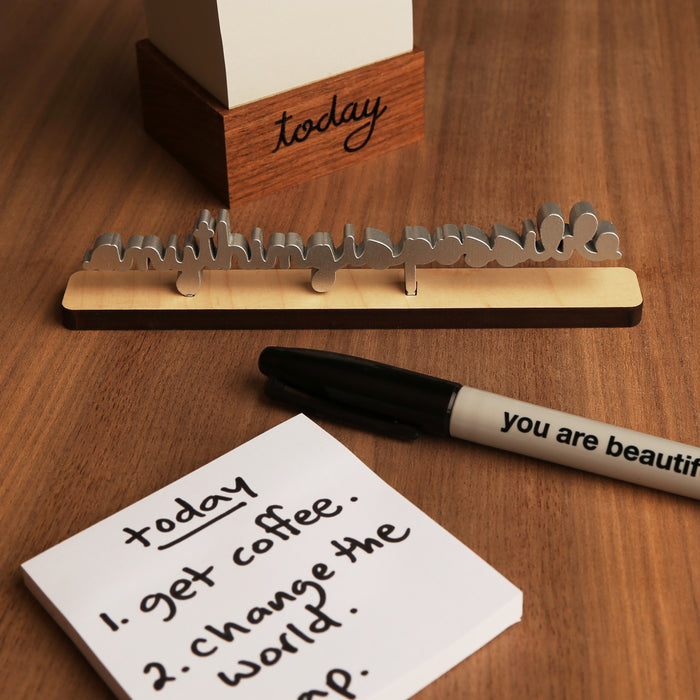 today
anything is possible
you are beautif
today
1. get coffee.
2. change the
world.
ap.